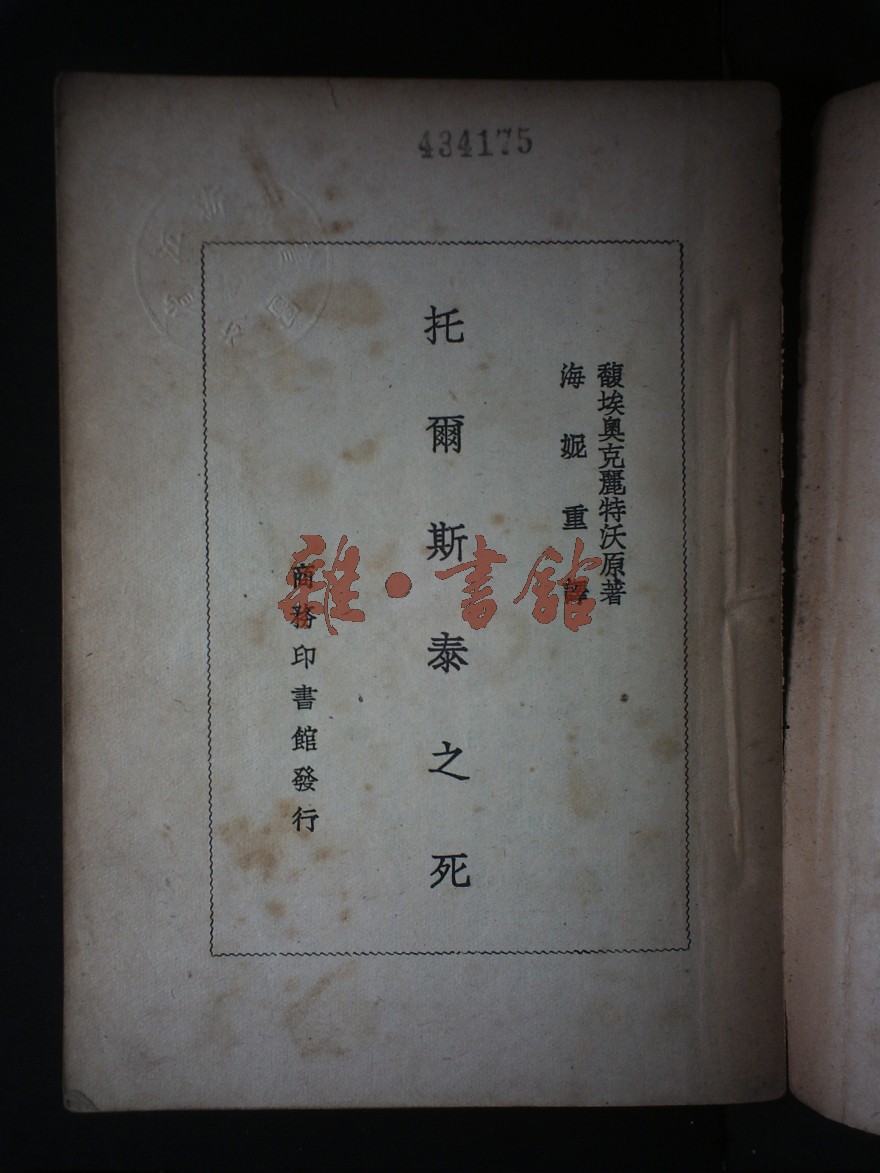 434175
馥埃奧克麗特沃原著
海妮重譯
托爾斯泰之死
商務印書館發行
雜·書館